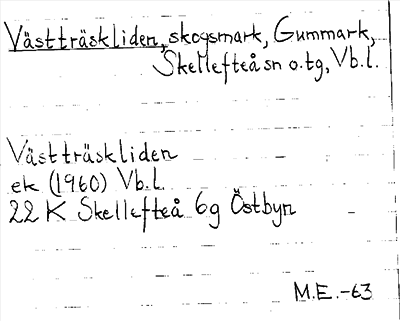 Västträskliden, skogsmark, Gummark,
Skellefteå sn o.tg, Vb.l.
Västträskliden
ek (1960) Vb.l.
22 K Skellefteå 6g Östbyn
M.E.-63